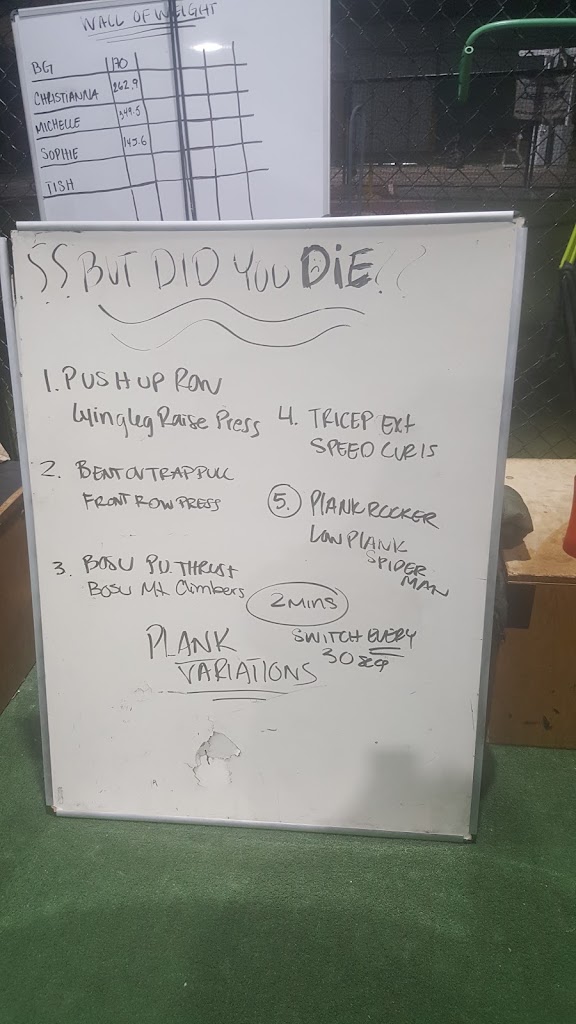 WALL OF WEIGHT
BG 170
CHRISTIANNA 262.9
MICHELLE 349.5
SOPHIE 145.6
TISH
BUT DID YOU DiE??
1. PUSH UP ROW
Lying leg Raise Press
2. BENT OV TRAP PULL
FRONT ROW PRESS
3. BOSU P.U. THRUST
BOSU Mt. Climbers
4. TRICEP Ext
SPEED CURLS
5. PLANK ROCKER
LOW PLANK
SPIDER
MAN
2 MINS
SWITCH EVERY
30 sec
PLANK
VARIATIONS